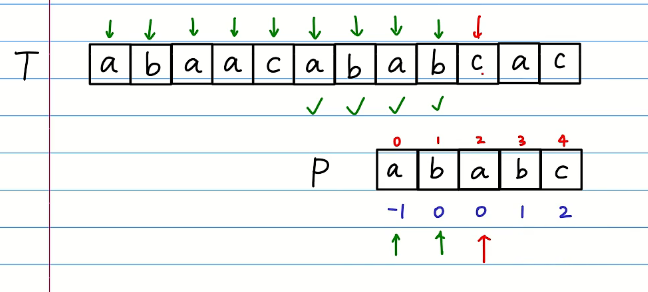 T a b a a c a b a b c a c
0 1 2 3 4
P a b a b c
-1 0 0 1 2